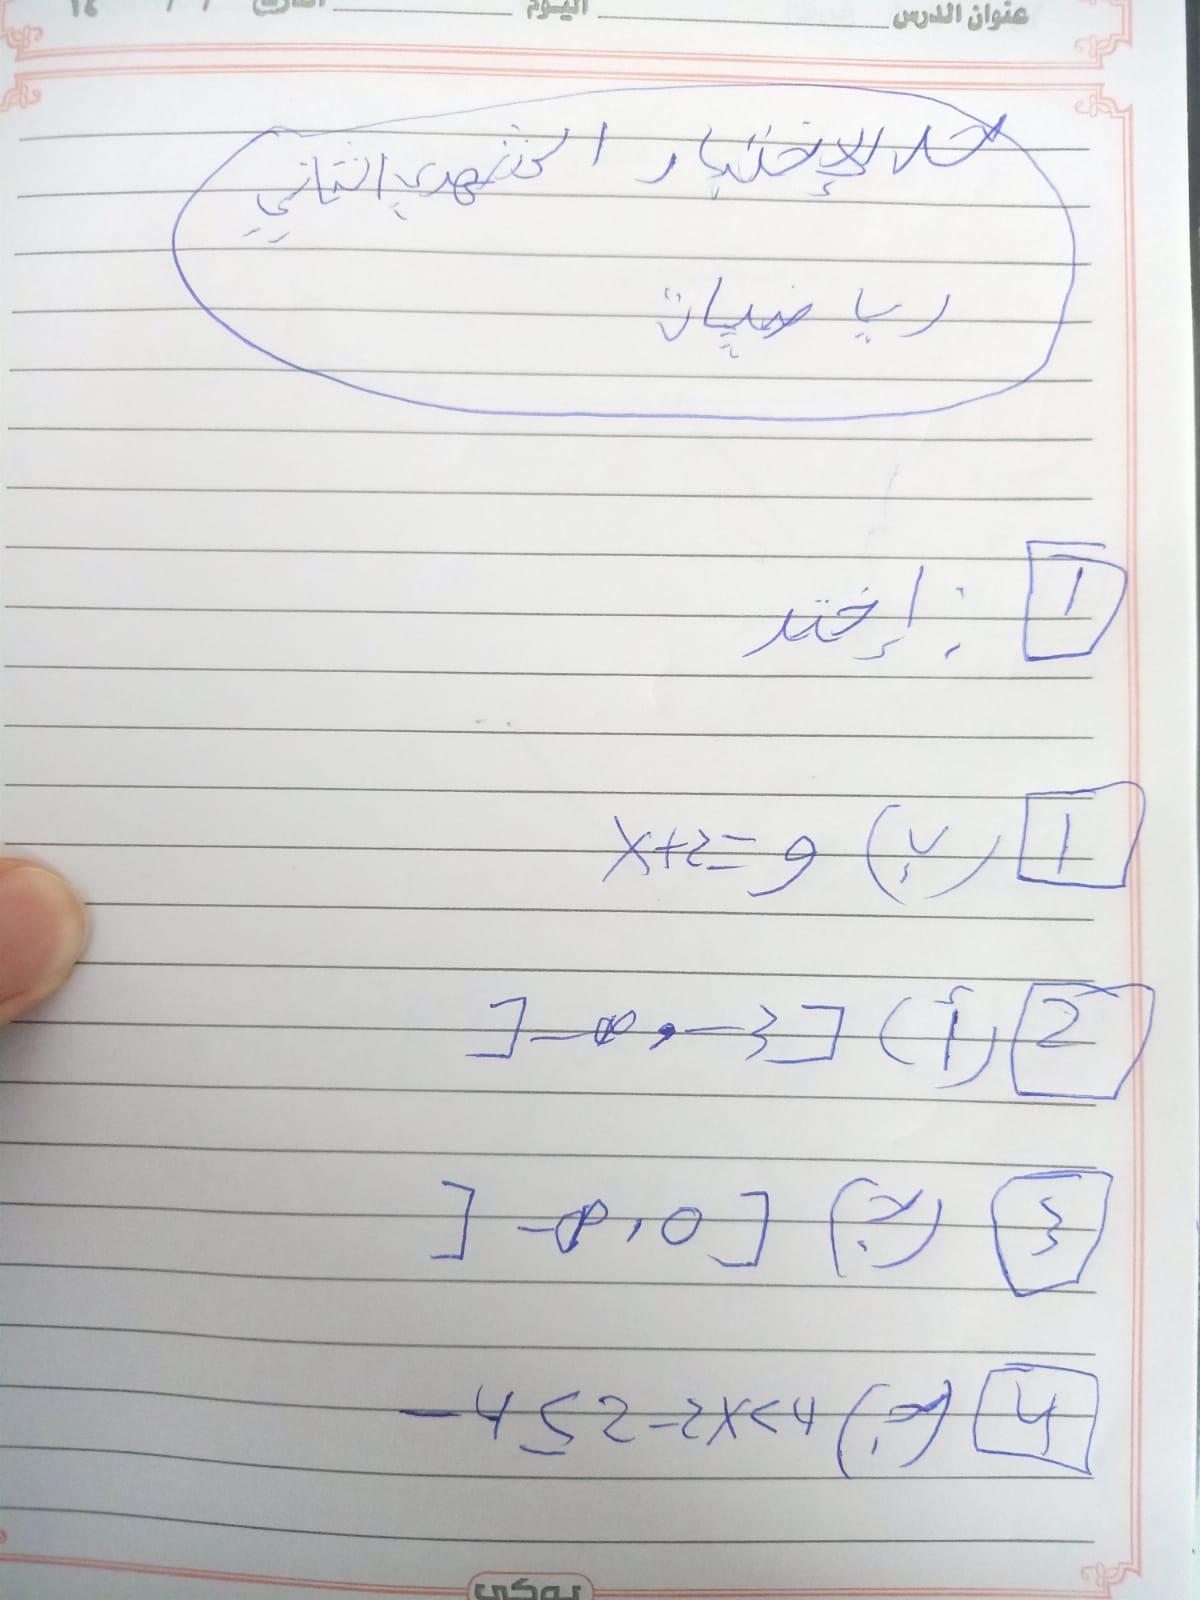 عنوان الدرس اليوم التاريخ / / ١٤
حل الإختبار الشهري الثاني
رياضيات
1 : إختر
1 (ب) x+2=9
2 (أ) ]-∞, -3]
3 (ج) ]-∞, 0]
4 (ج) -4≤2-2x<4
يوكي